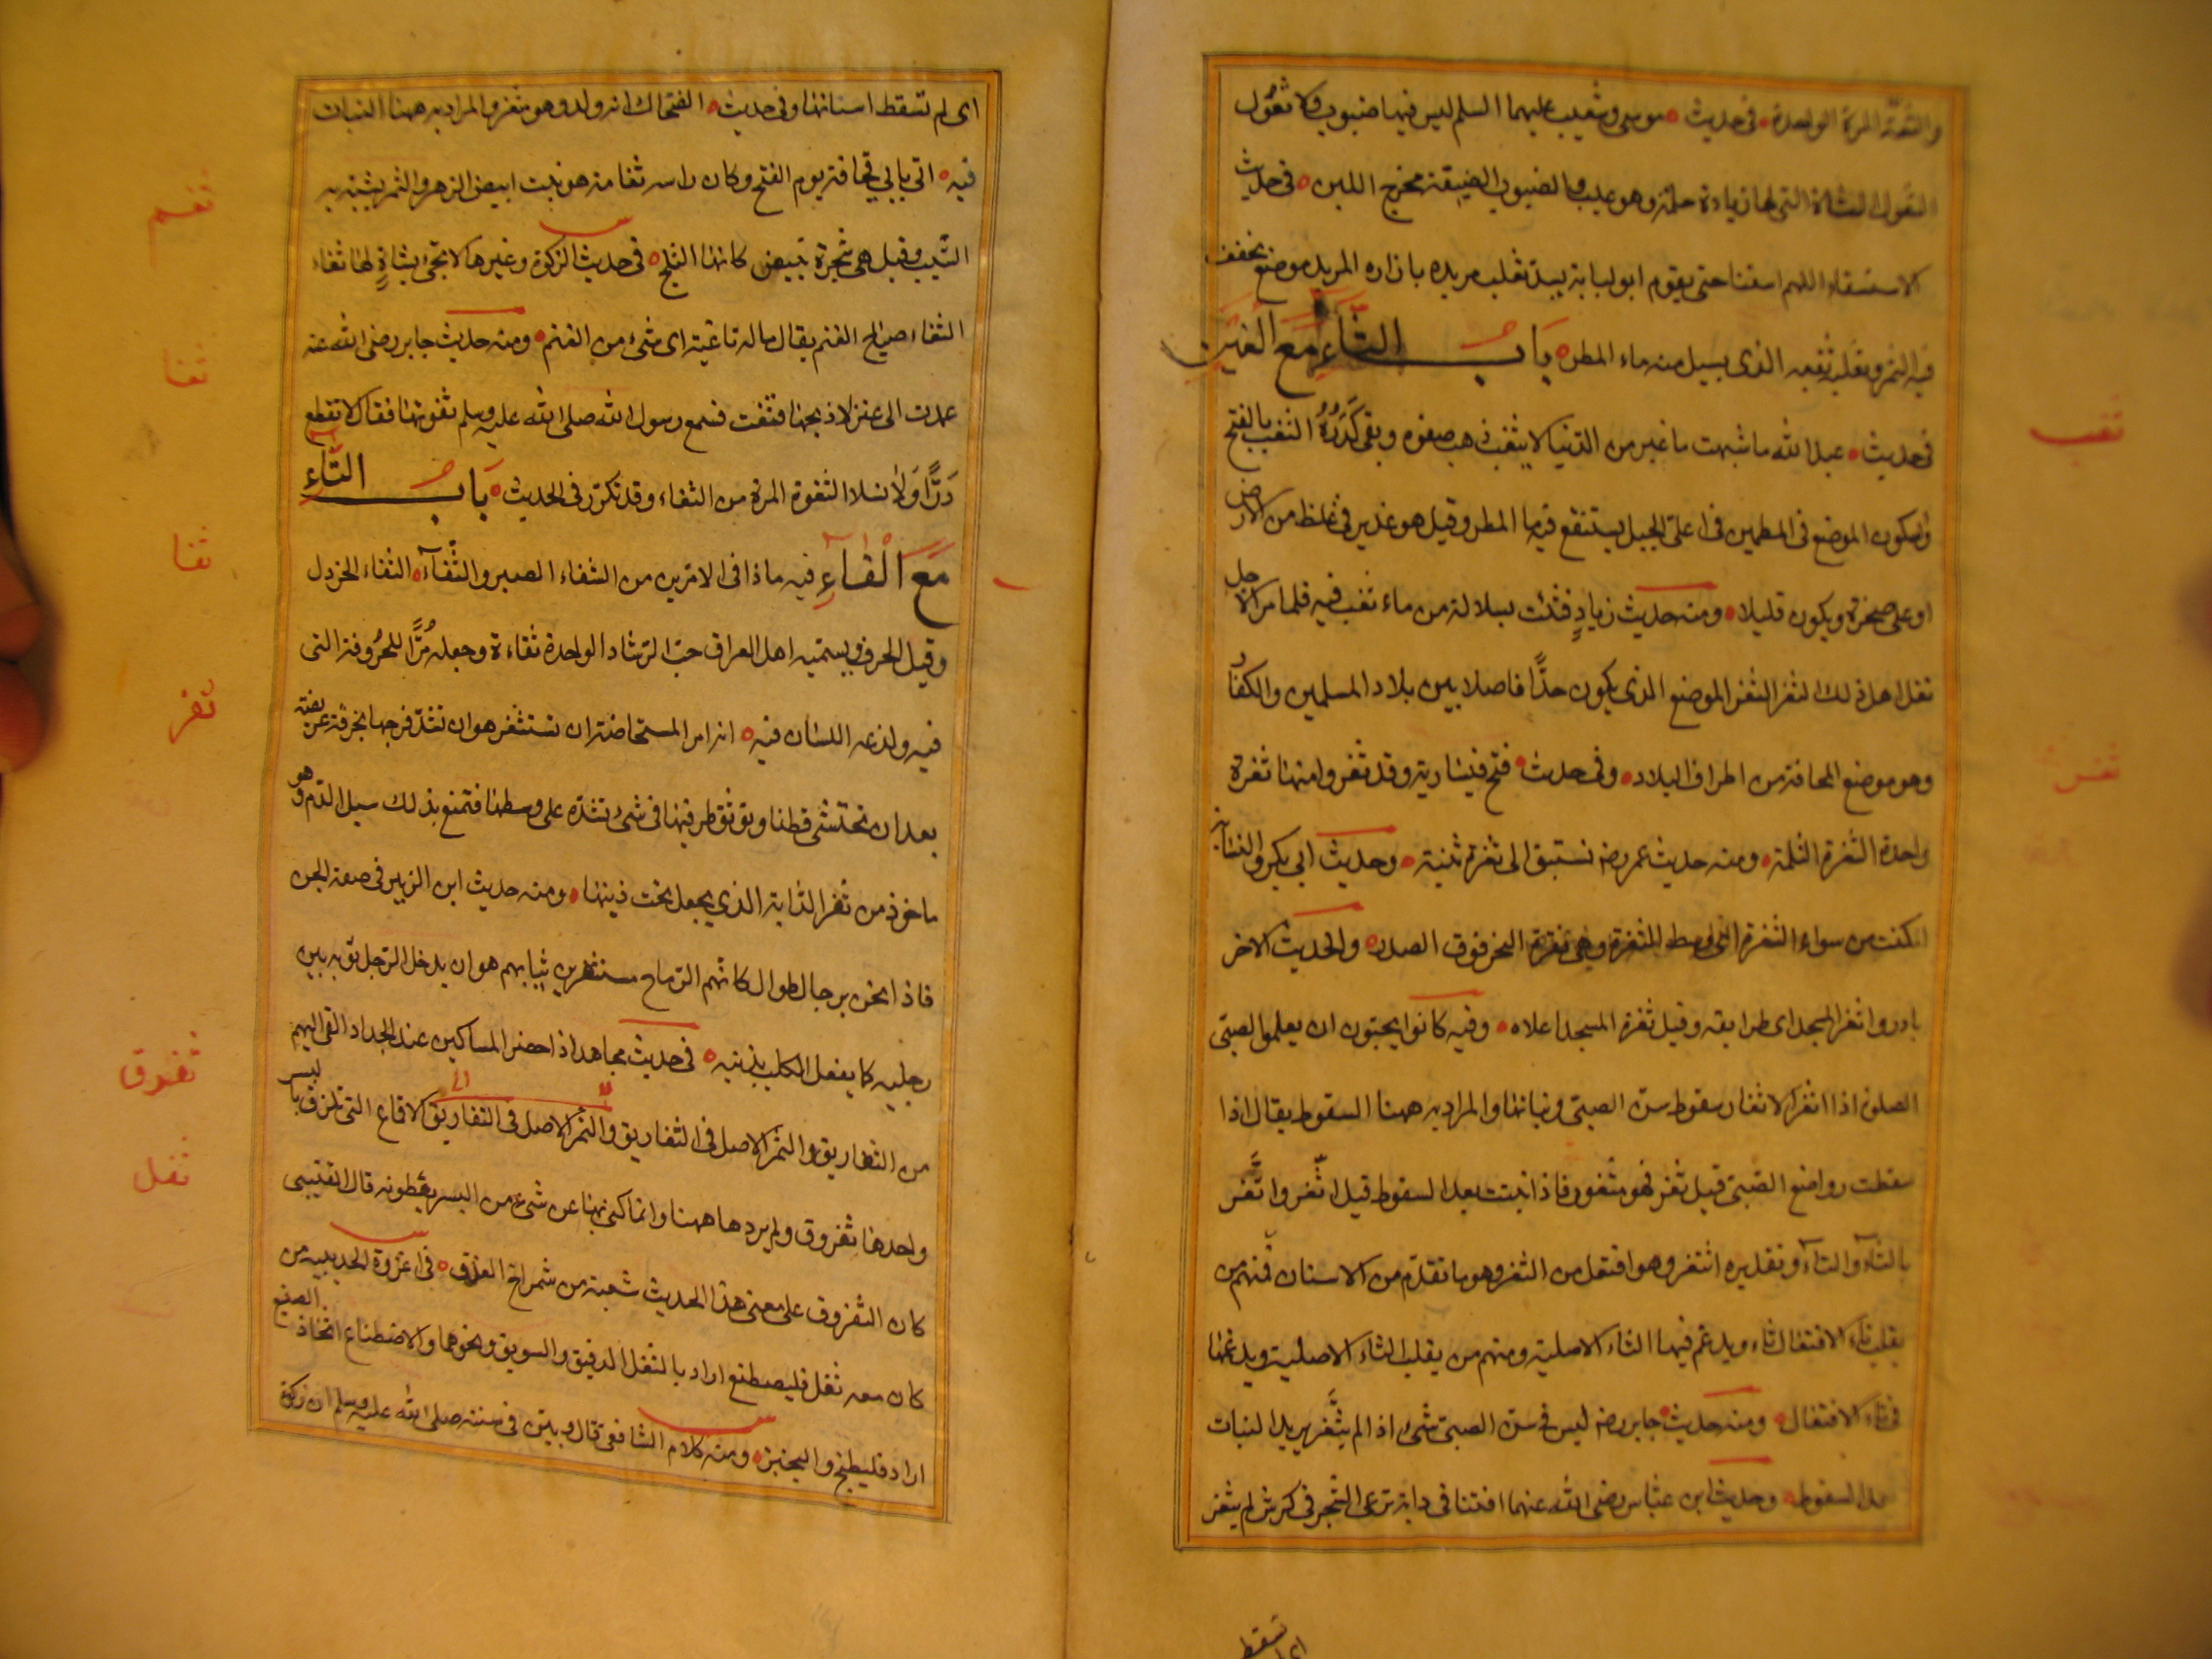 والثعّة المرة الواحدة في حديث موسى وشعيب عليهما السلم ليس فيها ضبوب ولا ثَعُول
الثعول الشاة التي لها زيادة حلمة وهو عيب والضبوب الضيقة مخرج اللبن في حديث
الاستسقاء اللهم اسقنا حتى يقوم ابو لبابة يسد ثعلب مربده بازاره المربد موضع يجفف
فيه التمر وثعلبه ثقبه الذى يسيل منه ماء المطر باب الثاء مع الغين
ثغب
في حديث عبد الله ما شبهت ما غبر من الدنيا الا بثغب ذهب صفوه وبقى كَدَرُهُ الثغب بالفتح
والسكون الموضع المطمئن في اعلى الجبل يستنقع فيه ماء المطر وقيل هو غدير في غلظ من الارض
او على صخرة ويكون قليلا ومنه حديث زيادٍ فثئت بسلالة من ماء ثغب فيه فلما مر الاجل
ثغر
ثغل اهل ذلك الثغر الثغر الموضع الذى يكون حدًّا فاصلا بين بلاد المسلمين والكفا
وهو موضع المخافة من اطراف البلاد وفي حديث فتح قيسارية وقد ثغروا منها ثغرة
واحدة الثغرة الثلمة ومنه حديث عمر رضه نستبق الى ثغرة ثنية وحديث ابي بكر والنسابة
امكنت من سواء الثغرة اى وسط الثغرة وهى نقرة النحر فوق الصدر والحديث الاخر
بادروا ثغر المسجد اى طرايقه وقيل ثغرة المسجد اعلاه وفيه كانوا يحبون ان يعلموا الصبي
الصلوة اذا اثغر الاثغار سقوط سن الصبي ونباتها والمراد به ههنا السقوط يقال اذا
سقطت رواضع الصّبي قيل ثغر فهو مثغور فاذا نبتت بعد السقوط قيل اثّغر واتَّغر
بالثآء والتآء وتقديره اثتغر وهو افتعل من الثغر وهو ما تقدّم من الاسنان فمنهم من
يقلب تاء الافتعال ثاء ويدغم فيها الثاء الاصلية ومنهم من يقلب الثاء الاصلية ويدغمها
في تاء الافتعال ومنه حديث جابر رضه ليس في سن الصبي شئ اذا لم يثّغر يريد النبات
بعد السقوط وحديث ابن عباس رضى الله عنهما افتنا في دابة ترعى الشجر في كرش لم يثغر
اى لم تسقط
اى لم تسقط اسنانها وفي حديث الضحاك انه ولد وهو مثغر والمراد به ههنا النبات
ثغم
فيه اتى بابي قحافة يوم الفتح وكان راسه ثغامة هو نبت ابيض الزهر والثمر يشبه به
الشّيب وقيل هى شجرة تبيض كانها الثلج في حديث الزكوة وغيرها لا تجئ بشاةٍ لها ثغاء
ثغا
الثغاء صياح الغنم يقال ماله ثاغية اى شئ من الغنم ومنه حديث جابر رضى الله عنه
عمدت الى عنز لاذبحها فثغت فسمع رسول الله صلى الله عليه وسلم ثغوتها فقال لا تقطع
دَرًّا وَلا نسلا الثغوة المرة من الثغاء وقد تكرّر في الحديث باب الثاء
ثفا
مَعَ الْفاءِ فيه ماذا في الامرّين من الشفاء الصبر والثُّفآء الثفاء الخردل
وقيل الحرف ويسمّيه اهل العراق حبّ الرّشاد الواحدة ثفاءة وجعله مُرًّا للحُروفة التى
ثفر
فيه ولذعه اللسان فيه انه امر المستحاضة ان تستثفر هو ان تشدّ فرجها بخرقة عريضة
بعد ان تحتشى قطنا وتوثق طرفيها في شئ تشدّه على وسطها فتمنع بذلك سيل الدّم وهو
ماخوذ من ثفر الدّابة الذي يجعل تحت ذنبها ومنه حديث ابن الزبير في صفة الجن
فاذا نحن برجال طوال كانهم الرّماح مستثفرين ثيابهم هو ان يدخل الرّجل ثوبه بين
رجليه كما يفعل الكلب بذنبه في حديث مجاهد اذا حضر المساكين عند الجداد القى اليهم
ثفروق
من الثفاريق والتمر الاصل في الثفاريق والتمر الاصل في الثفاريق الاقماع التى تلزق بالبسر
واحدها ثفروق ولم يردها ههنا وانما كنى بها عن شئ من البسر يعطونه قال القتيبى
ثفل
كان الثفروق على معنى هذا الحديث شعبة من شمراخ العذق في غزوة الحديبيه من
كان معه ثفل فليصطنع اراد بالثفل الدقيق والسويق ونحوهما والاصطناع اتخاذ الصنيع
اراد فليطبخ وليختبز ومنه كلام الشافعى قال وبيّن في سنته صلى الله عليه وسلم ان زكوة